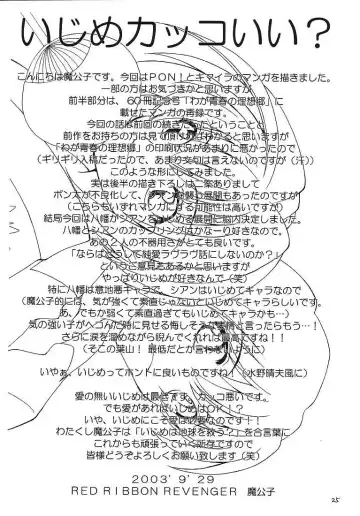 いじめカッコいい？
こんにちは魔公子です。今回はPON!とキマイラのマンガを描きました。
一部の方はお気づきかと思いますが
前半部分は、60冊記念号「わが青春の理想郷」に
載せたマンガの再録です。
今回の話は前回の続きだったということと
前作をお持ちの方は見て頂ければわかると思いますが
「わが青春の理想郷」の印刷状況があまりに悪かったので
（ギリギリ入稿だったので、あまり文句は言えないのですが（汗））
このような形にしてみました。
実は後半の描き下ろしは二案ありまして
ポン太が不良化して、
（こちらもいずれマンガにする可能性は高いですが）
結局今回は八幡がシアンをいじめる展開に脳内決定しました。
八幡とシアンのカップリングはかなーり好きなので。
あの2人の不器用さがとても良いです。
「ならばどうして純愛ラヴラヴ話にしないのか？」
というご意見もあるかと思いますが
やっぱりいじめが好きなんで（笑）
特に八幡は意地悪キャラで、シアンはいじめてキャラなので
（魔公子的には、気が強くて素直じゃないといじめてキャラらしいです。
あ、でもか弱くて素直過ぎてもいじめてキャラかも…）
気の強い子がヘコんだ時に見せる悔しそうな表情と言ったらもう…！
さらに涙を溜めながら睨んでくれれば最高ですね！！
（そこの葉山！ 最低だとか言わないように）
いやぁ、いじめってホントに良いものですね！（水野晴夫風に）
愛の無いいじめは最低です。カッコ悪いです。
でも愛があればいじめはOK！？
いや、いじめにこそ愛は必要なのです！！
わたくし魔公子は「いじめは地球を救う？」を合言葉に
これからも頑張っていく所存ですので
皆様どうぞよろしくお願い致します（笑）
2003'9'29
RED RIBBON REVENGER 魔公子
25